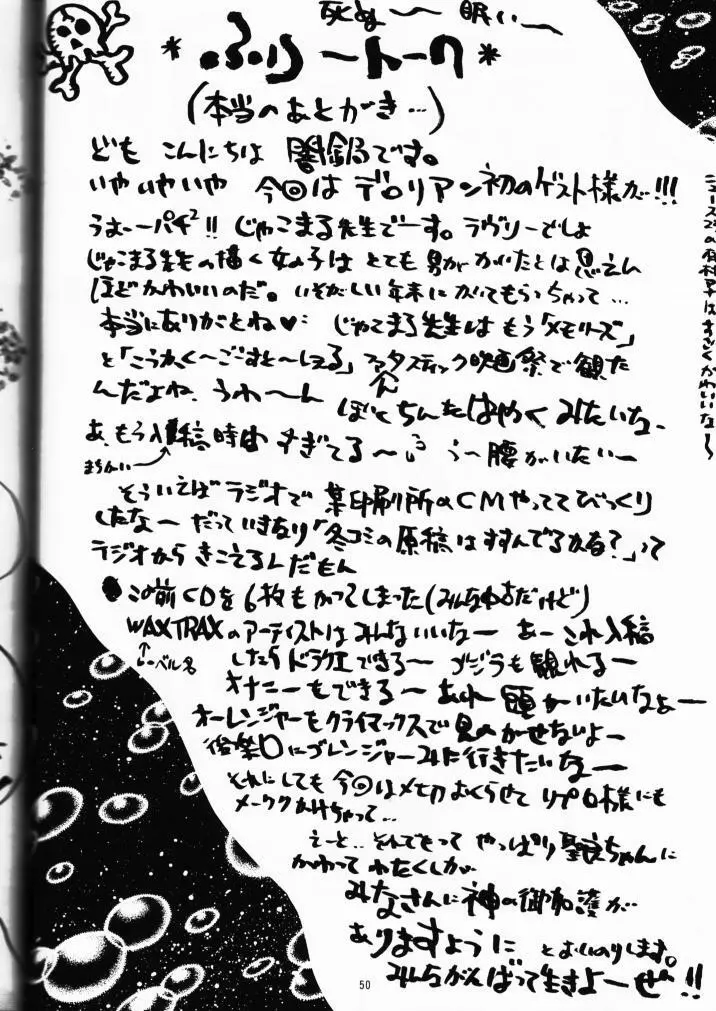 死ぬ〜 眠い〜
*ふりーとーく*
(本当のあとがき…)
ども こんにちは 闇鍋です。
いやいやいや 今回は デロリアン初のゲスト様が!!!
うぉーーパチ²!! じゃこまる先生でーす。ラヴリーでしょ
じゃこまる先生の描く女の子は とても男がかいたとは思えん
ほどかわいいのだ。いそがしい年末にかいてもらっちゃって…
本当にありがとね♥ じゃこまる先生はもう「メモリーズ」
と「こうかく〜ごーすと〜しぇる」ファンタスティック映画祭で観た
んだよね、うわーん ぼくちんもはやくみたいなー
あ、もう入稿時は すぎてる〜 うー腰がいたいー
まちがい
そういえばラジオで 某印刷所のCMやっててびっくり
したなー だっていきなり「冬コミの原稿はすすんでるかな?」って
ラジオからきこえるんだもん
この前CDを6枚もかってしまった(みんな中古だけど)
WAXTRAXのアーティストはみんないいなー あーこれ入稿
↑レーベル名
したらドラクエできる〜 ゴジラも観れるー
オナニーもできる〜 あれ 頭がいたいなぁー
オーレンジャーもクライマックスで見のがせないよー
後楽口にゴレンジャーみに行きたいなー
それにしても今回はメチャおくらせて リプロ様にも
メーワクかけちゃって…
えーと…そんでもって やっぱり聖良ちゃんに
かわって わたくしが
みなさんに神の御加護が
ありますように とおいのりします。
みんながんばって生きよーぜ!!
50
はすごくかわいいな〜